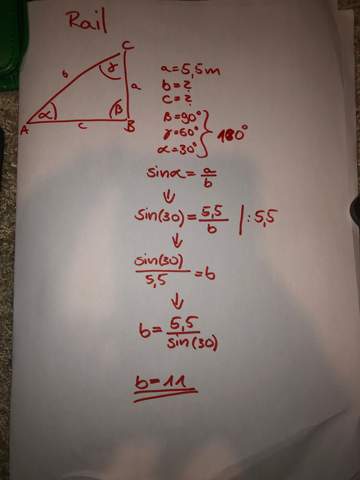 Rail
C
γ
b
a
α
β
A
c
B
a=5,5m
b=?
c=?
β=90°
γ=60°
α=30°
180°
sinα=a/b
↓
sin(30)=5,5/b |:5,5
↓
sin(30)/5,5=b
↓
b=5,5/sin(30)
b=11